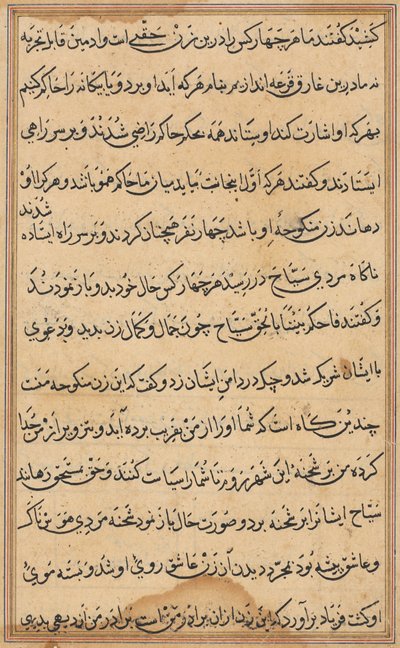 کفتند ما هر چهار کس را درین زن حقی است و ادمین قابل تجزیه
نه ما درین قرعه اندازیم بنام هرکه آید او برد و یا بیکانه را حاکم کنیم
بهرکه او اشارت کند او بستاند همه بحکم حاکم راضی شدند و بر سر راهی
ایستادند و کفتند هرکه اول اینجانب بیاید میان ما حاکم همو باشد و هرکرا او
دهاند زن منکوحه او باشد چهار نفر همچنان کردند و بر سر راه ایستاده شدند
ناکاه مردی سیاح در رسید هر چهار کس حال خود بدو باز نمودند
و کفتند فاحکم بیننا بالحق سیاح چون جمال و کمال زن بدید و بدعوی
با ایشان شریک شد و چنک در دامن ایشان زد و کفت که این زن منکوحه منست
چندین کاه است که شما او را از من بفریب برده آید و بتزویر از من جدا
کرده من بر شحنه این شهر روم تا شما را سیاست کنند و حق بمستحق رهانند
سیاح ایشانرا بر شحنه برد و صورت حال باز نمود شحنه مردی هوسناک
و عاشق پیشه بود بمجرد دیدن آن زن عاشق روی او شد و بسته موی
او کشت فریاد برآورد که این زن ازان برادر من است برادر من از بهی بدیهی